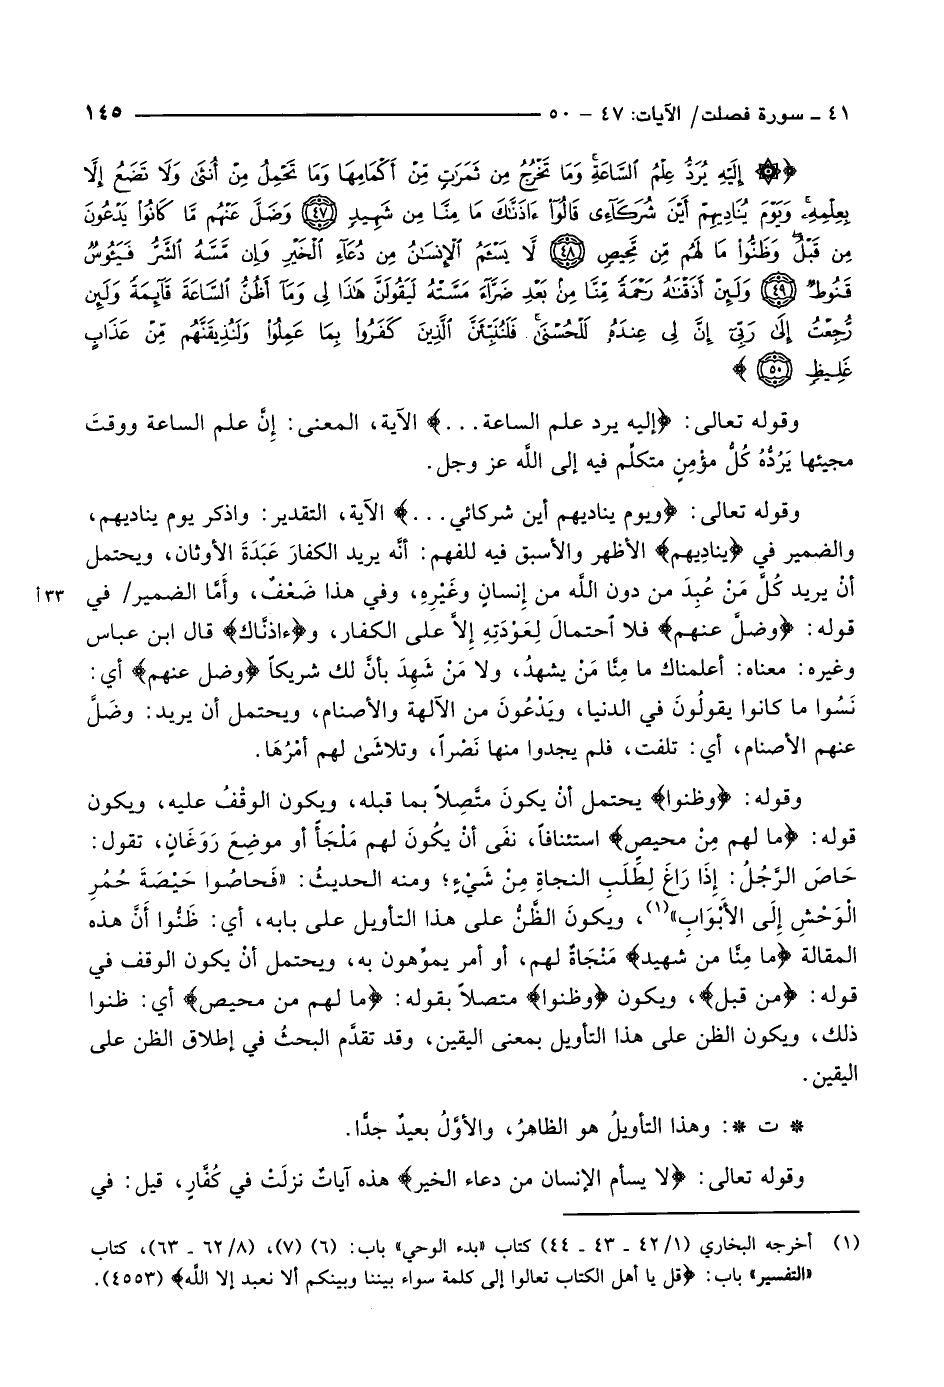 ٤١ ـ سورة فصلت/ الآيات: ٤٧ ـ ٥٠ ١٤٥
﴿۞ إِلَيْهِ يُرَدُّ عِلْمُ ٱلسَّاعَةِۚ وَمَا تَخْرُجُ مِن ثَمَرَٰتٍ مِّنْ أَكْمَامِهَا وَمَا تَحْمِلُ مِنْ أُنثَىٰ وَلَا تَضَعُ إِلَّا
بِعِلْمِهِۦۚ وَيَوْمَ يُنَادِيهِمْ أَيْنَ شُرَكَآءِى قَالُوٓاْ ءَاذَنَّٰكَ مَا مِنَّا مِن شَهِيدٍ ٤٧ وَضَلَّ عَنْهُم مَّا كَانُواْ يَدْعُونَ
مِن قَبْلُۖ وَظَنُّواْ مَا لَهُم مِّن مَّحِيصٍ ٤٨ لَّا يَسْـَٔمُ ٱلْإِنسَٰنُ مِن دُعَآءِ ٱلْخَيْرِ وَإِن مَّسَّهُ ٱلشَّرُّ فَيَـُٔوسٌ
قَنُوطٌ ٤٩ وَلَئِنْ أَذَقْنَٰهُ رَحْمَةً مِّنَّا مِنۢ بَعْدِ ضَرَّآءَ مَسَّتْهُ لَيَقُولَنَّ هَٰذَا لِى وَمَآ أَظُنُّ ٱلسَّاعَةَ قَآئِمَةً وَلَئِن
رُّجِعْتُ إِلَىٰ رَبِّىٓ إِنَّ لِى عِندَهُۥ لَلْحُسْنَىٰۚ فَلَنُنَبِّئَنَّ ٱلَّذِينَ كَفَرُواْ بِمَا عَمِلُواْ وَلَنُذِيقَنَّهُم مِّنْ عَذَابٍ
غَلِيظٍ ٥٠﴾
وقوله تعالى: ﴿إليه يرد علم الساعة...﴾ الآية، المعنى: إِنَّ علم الساعة ووقتَ
مجيئها يَرُدُّهُ كُلُّ مؤْمِنٍ متكلِّم فيه إلى اللَّه عز وجل.
وقوله تعالى: ﴿ويوم يناديهم أين شركائي...﴾ الآية، التقدير: واذكر يوم يناديهم،
والضمير في ﴿يناديهم﴾ الأظهر والأسبق فيه للفهم: أنَّه يريد الكفارَ عَبَدَةَ الأوثان، ويحتمل
أنْ يريد كُلَّ مَنْ عُبِدَ من دون اللَّه من إنسانٍ وغَيْرِهِ، وفي هذا ضَعْفٌ، وأَمَّا الضمير/ في ٣٣أ
قوله: ﴿وضلَّ عنهم﴾ فلا ٱحتمالَ لِعَوْدَتِهِ إِلاَّ على الكفار، و﴿ءاذنَّاك﴾ قال ابن عباس
وغيره: معناه: أعلمناك ما مِنَّا مَنْ يشهدُ، ولا مَنْ شَهِدَ بأنَّ لك شريكاً ﴿وضل عنهم﴾ أي:
نَسُوا ما كانوا يقولُونَ في الدنيا، ويَدْعُونَ من الآلهة والأصنام، ويحتمل أن يريد: وضَلَّ
عنهم الأصنام، أي: تلفت، فلم يجدوا منها نَصْراً، وتلاشىٰ لهم أمْرُهَا.
وقوله: ﴿وظنوا﴾ يحتمل أنْ يكونَ متَّصِلاً بما قبله، ويكون الوقْفُ عليه، ويكون
قوله: ﴿ما لهم مِنْ محيصٍ﴾ استئنافاً، نفَى أنْ يكُونَ لهم مَلْجَأً أو موضِعَ رَوَغَانٍ، تقول:
حَاصَ الرَّجُلُ: إِذَا رَاغَ لِطَلَبِ النجاةِ مِنْ شَيْءٍ؛ ومنه الحديثُ: «فَحاصُوا حَيْصَةَ حُمُرِ
الْوَحْشِ إِلَى الأَبْوَابِ»(١)، ويكونَ الظَّنُّ على هذا التأويل على بابه، أي: ظَنُّوا أَنَّ هذه
المقالة ﴿ما مِنَّا من شهيد﴾ مَنْجَاةٌ لهم، أو أمر يموِّهون به، ويحتمل أنْ يكون الوقف في
قوله: ﴿من قبل﴾، ويكون ﴿وظنوا﴾ متصلاً بقوله: ﴿ما لهم من محيص﴾ أي: ظنوا
ذلك، ويكون الظن على هذا التأويل بمعنى اليقين، وقد تقدَّم البحثُ في إطلاق الظن على
اليقين.
* ت *: وهذا التأويلُ هو الظاهرُ، والأوَّلُ بعيدٌ جدًّا.
وقوله تعالى: ﴿لا يسأم الإنسان من دعاء الخير﴾ هذه آياتٌ نزلَتْ في كُفَّارٍ، قيل: في
(١) أخرجه البخاري (١/ ٤٢ ـ ٤٣ ـ ٤٤) كتاب «بدء الوحي» باب: (٦) (٧)، (٨/ ٦٢ ـ ٦٣)، كتاب
«التفسير» باب: ﴿قل يا أهل الكتاب تعالوا إلى كلمة سواء بيننا وبينكم ألا نعبد إلا اللَّه﴾ (٤٥٥٣).